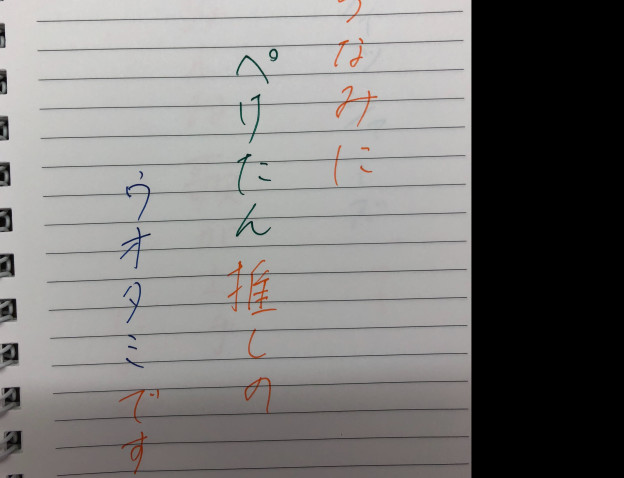 ちなみに
ぺけたん推しの
ウオタミです